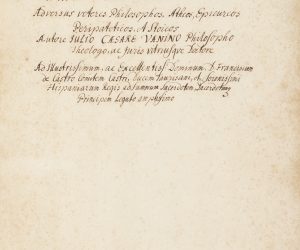 Adversus veteres Philosophos, Atheos, Epicureos
Peripateticos, et Stoicos
Autore IULIO CAESARE VANINO Philosopho
Theologo, ac Juris utriusque Doctore
Ad Illustrissimum, ac Excellentiss Dominum, D. Franciscum
de Castro Comitem Castri, Ducem Taurisani, et serenissimi
Hispaniarum Regis ad summum Sacerdotem
Principem Legato amplissimo